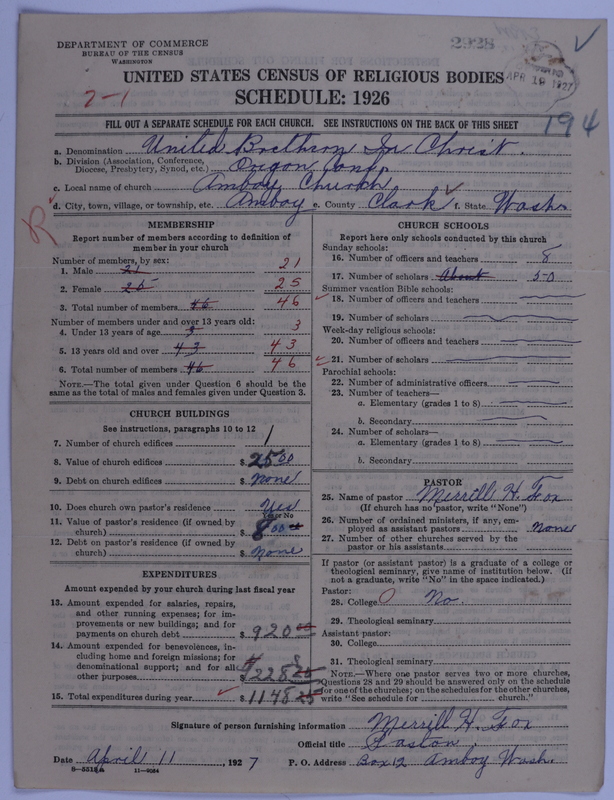 DEPARTMENT OF COMMERCE
BUREAU OF THE CENSUS
WASHINGTON
APR 19 1927
UNITED STATES CENSUS OF RELIGIOUS BODIES
2-1
SCHEDULE: 1926
FILL OUT A SEPARATE SCHEDULE FOR EACH CHURCH. SEE INSTRUCTIONS ON THE BACK OF THIS SHEET
194
a. Denomination United Brethren In Christ.
b. Division (Association, Conference, Diocese, Presbytery, Synod, etc.) Oregon Conf.
c. Local name of church Amboy Church
d. City, town, village, or township, etc. Amboy e. County Clark f. State Wash.
R
MEMBERSHIP
Report number of members according to definition of member in your church
Number of members, by sex:
1. Male 21 21
2. Female 25 25
3. Total number of members 46 46
Number of members under and over 13 years old:
4. Under 13 years of age 3 3
5. 13 years old and over 43 43
6. Total number of members 46 46
NOTE.—The total given under Question 6 should be the same as the total of males and females given under Question 3.
CHURCH BUILDINGS
See instructions, paragraphs 10 to 12
7. Number of church edifices 1
8. Value of church edifices $ 2500
9. Debt on church edifices $ None
10. Does church own pastor's residence Yes
11. Value of pastor's residence (if owned by church) $ 800
12. Debt on pastor's residence (if owned by church) $ None
EXPENDITURES
Amount expended by your church during last fiscal year
13. Amount expended for salaries, repairs, and other running expenses; for improvements or new buildings; and for payments on church debt $ 920 00
14. Amount expended for benevolences, including home and foreign missions; for denominational support; and for all other purposes $ 228 25
15. Total expenditures during year $ 1148 25
CHURCH SCHOOLS
Report here only schools conducted by this church
Sunday schools:
16. Number of officers and teachers 8
17. Number of scholars About 50
Summer vacation Bible schools:
18. Number of officers and teachers
19. Number of scholars
Week-day religious schools:
20. Number of officers and teachers
21. Number of scholars
Parochial schools:
22. Number of administrative officers
23. Number of teachers—
a. Elementary (grades 1 to 8)
b. Secondary
24. Number of scholars—
a. Elementary (grades 1 to 8)
b. Secondary
PASTOR
25. Name of pastor Merrill H. Fox
(If church has no pastor, write "None")
26. Number of ordained ministers, if any, employed as assistant pastors None
27. Number of other churches served by the pastor or his assistants
If pastor (or assistant pastor) is a graduate of a college or theological seminary, give name of institution below. (If not a graduate, write "No" in the space indicated.)
Pastor:
28. College 0 No.
29. Theological seminary
Assistant pastor:
30. College
31. Theological seminary
NOTE.—Where one pastor serves two or more churches, Questions 28 and 29 should be answered only on the schedule for one of the churches; on the schedules for the other churches, write "See schedule for church."
Signature of person furnishing information Merrill H. Fox
Official title Pastor.
Date April 11, 1927 P. O. Address Box 12 Amboy Wash.
8-5519a 11-9084